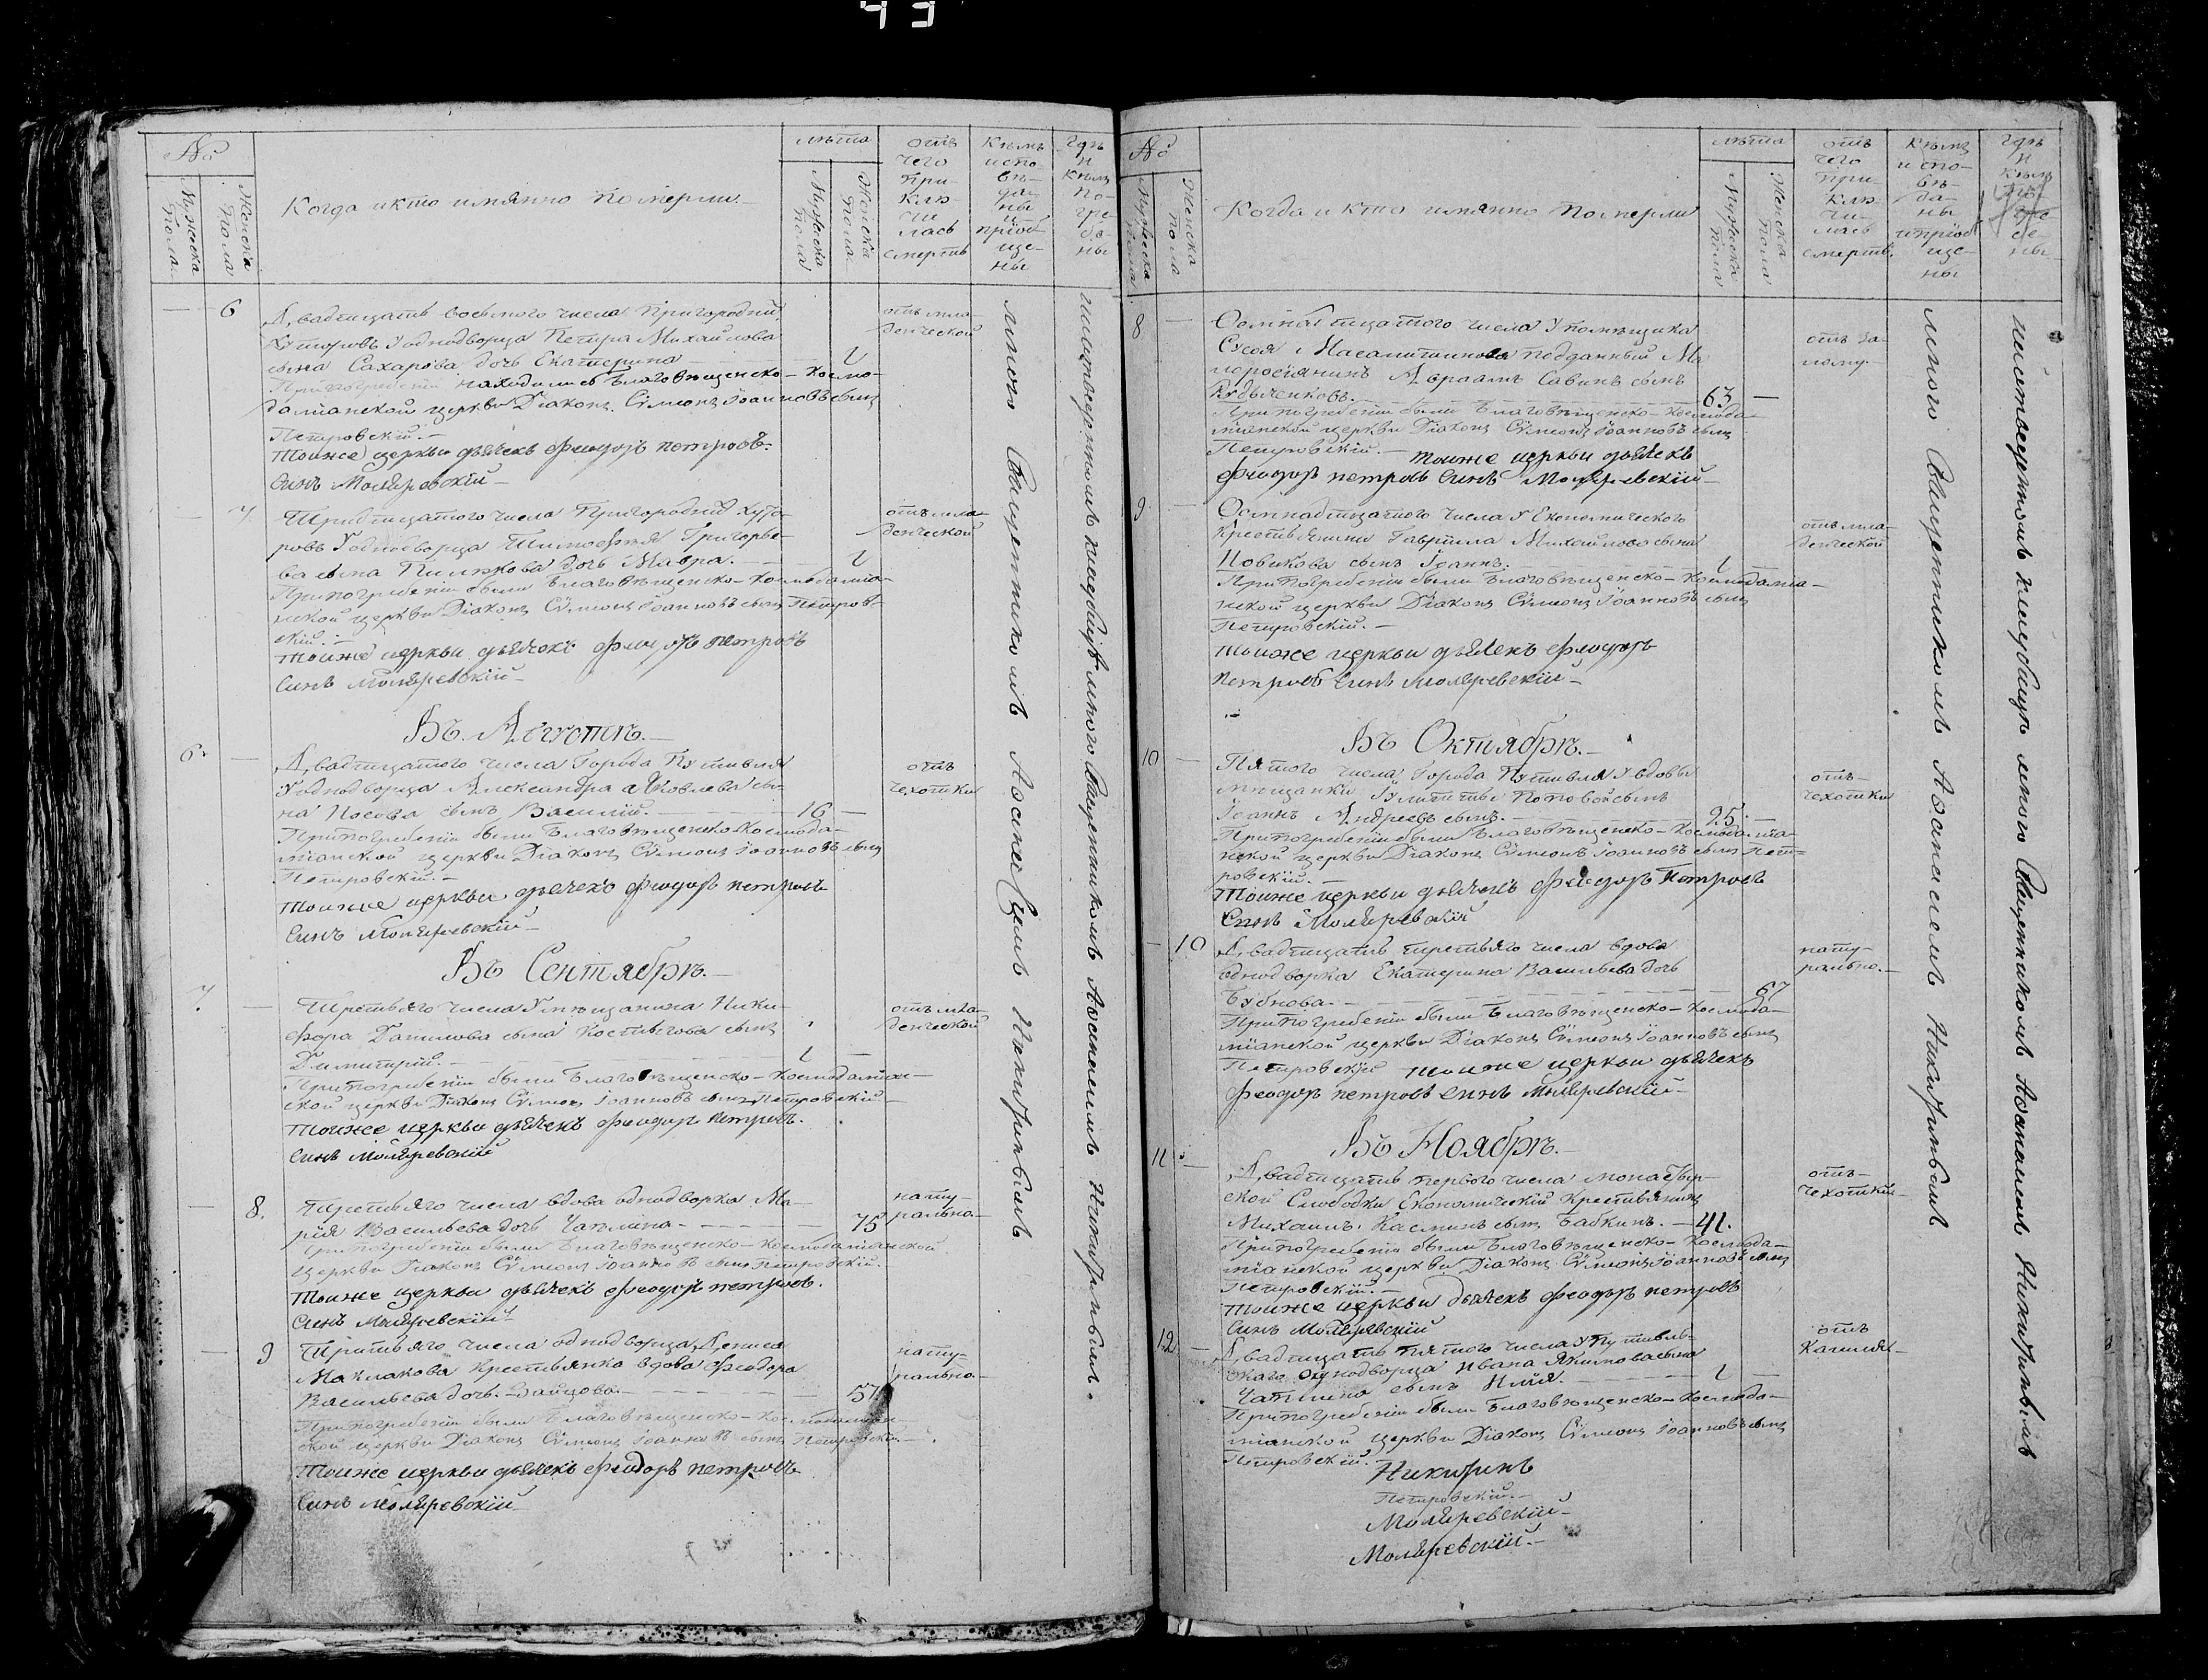 43
№
Мужеска пола
Женска пола
Когда и кто имянно померли
лѣта
Мужеска пола
Женска пола
отъ чего приключилась смерть
Кѣмъ исповѣданы и пріобщены
Гдѣ и Кѣмъ погребены
6
Двадцать восьмого числа Пригородний
Хуторовъ У однодворца Петра Михайлова
сына Сахарова дочь Екатерина
1
отъ мла-
денческой
При погребеніи находились Благовѣщенско-Космо-
даміанской церкви Діаконъ Сѵмеонъ Іоанновъ сынъ
Петровскій.
тоиже церкви дьячекъ феодоръ петровъ
Синъ Моляревскій
7
Тридцатого числа Пригородній Хуто-
ровъ У однодворца Тимофея Григорье-
ва сына дочь Мавра.
1
отъ мла-
денческой
При погребеніи были Благовѣщенско-Космодаміа-
нской церкви Діаконъ Сѵмеонъ Іоанновъ сынъ Петров-
скій.
тоиже церкви дьячекъ феодоръ петровъ
Синъ Моляревскій
Въ Августѣ.
6.
Двадцатого числа Города Путивля
У однодворца Александра Яковлева сы-
на Носова сынъ Василій.
16
отъ
чехотки
При погребеніи были Благовѣщенско Космода-
міанской церкви Діаконъ Сѵмеонъ Іоанновъ сынъ
Петровскій.
тоиже церкви дьячекъ феодоръ петровъ
Синъ Моляревскій
Въ Сентябрѣ.
7.
Третьяго числа У мѣщанина Ники-
фора Данилова сына сынъ
Димитрій.
1
отъ мла-
денческой
При погребеніи были Благовѣщенско-Космодаміан-
ской церкви Діаконъ Сѵмеонъ Іоанновъ сынъ Петровскій
тоиже церкви дьячекъ феодоръ петровъ.
Синъ Моляревскій
8.
Третьяго числа вдова однодворка Ма-
рія Васильева дочь Чаплина
75
нату-
рально
При погребеніи были Благовѣщенско-Космодаміанской
церкви Діаконъ Сѵмеонъ Іоанновъ сынъ Петровскій.
тоиже церкви дьячекъ феодоръ петровъ.
Синъ Моляревскій
9
Третьяго числа однодворца Дениса
Маклакова Крестьянка вдова Феодора
Васильева дочь Зайцова.
57
нату-
рально.
При погребеніи были Благовѣщенско-Космодаміан-
ской церкви Діаконъ Сѵмеонъ Іоанновъ сынъ Петровскій.
тоиже церкви дьячекъ феодоръ петровъ
Синъ Моляревскій
мною Священникомъ Никифиномъ
мною Священникомъ
№
Мужеска пола
Женска пола
Когда и кто имянно померли
лѣта
Мужеска пола
Женска пола
отъ чего приключилась смерть
Кѣмъ исповѣданы и пріобщены
Гдѣ и Кѣмъ
8
Осмнадцатого числа У помѣщика
подданный Ма-
лоросіянинъ Авраамъ Савинъ сынъ
63
При погребеніи были Благовѣщенско-Космода-
міанской церкви Діаконъ Сѵмеонъ Іоанновъ сынъ
Петровскій. тоиже церкви дьячекъ
феодоръ петровъ Синъ Моляревскій
9.
Осмнадцатого числа У Економического
Крестьянина Гавриила Михайлова сына
Новикова сынъ Іоаннъ.
1
отъ мла-
денческой
При погребеніи были Благовѣщенско-Космодаміа-
нской церкви Діаконъ Сѵмеонъ Іоанновъ сынъ
Петровскій.
тоиже церкви дьячекъ феодоръ
петровъ Синъ Моляревскій
Въ Октябрѣ.
10
Пятого числа Города Путивля У вдовы
мѣщанки Улиты Поповой сынъ
Іоаннъ Андреевъ сынъ.
25.
отъ
чехотки
При погребеніи были Благовѣщенско-Космодаміа-
нской церкви Діаконъ Сѵмеонъ Іоанновъ сынъ Пет-
ровскій.
тоиже церкви дьячекъ феодоръ петровъ
Синъ Моляревскій
10
Двадцать третьяго числа вдова
однодворка Екатерина Васильева дочь
Бубнова.
67
нату-
рально.
При погребеніи были Благовѣщенско-Космода-
міанской церкви Діаконъ Сѵмеонъ Іоанновъ сынъ
Петровскій тоиже церкви дьячекъ
феодоръ петровъ синъ Моляревскій
Въ Ноябрѣ.
11
Двадцать первого числа Монастыр-
ской Слободки Економическій Крестьянинъ
Михаилъ Касминъ сынъ Бабкинъ.
41.
отъ
чехотки
При погребеніи были Благовѣщенско-Космода-
міанской церкви Діаконъ Сѵмеонъ Іоанновъ сынъ
Петровскій.
тоиже церкви дьячекъ феодоръ петровъ
Синъ Моляревскій
12.
Двадцать пятого числа У Путивль-
скаго однодворца Ивана Якимова сына
Чаплина сынъ Илія.
1
отъ
Кашля
При погребеніи были Благовѣщенско-Космода-
міанской церкви Діаконъ Сѵмеонъ Іоанновъ сынъ
Петровскій.
Никифинъ
Петровскій.
Моляревскій
Моляревскій.
мною Священникомъ
мною Священникомъ